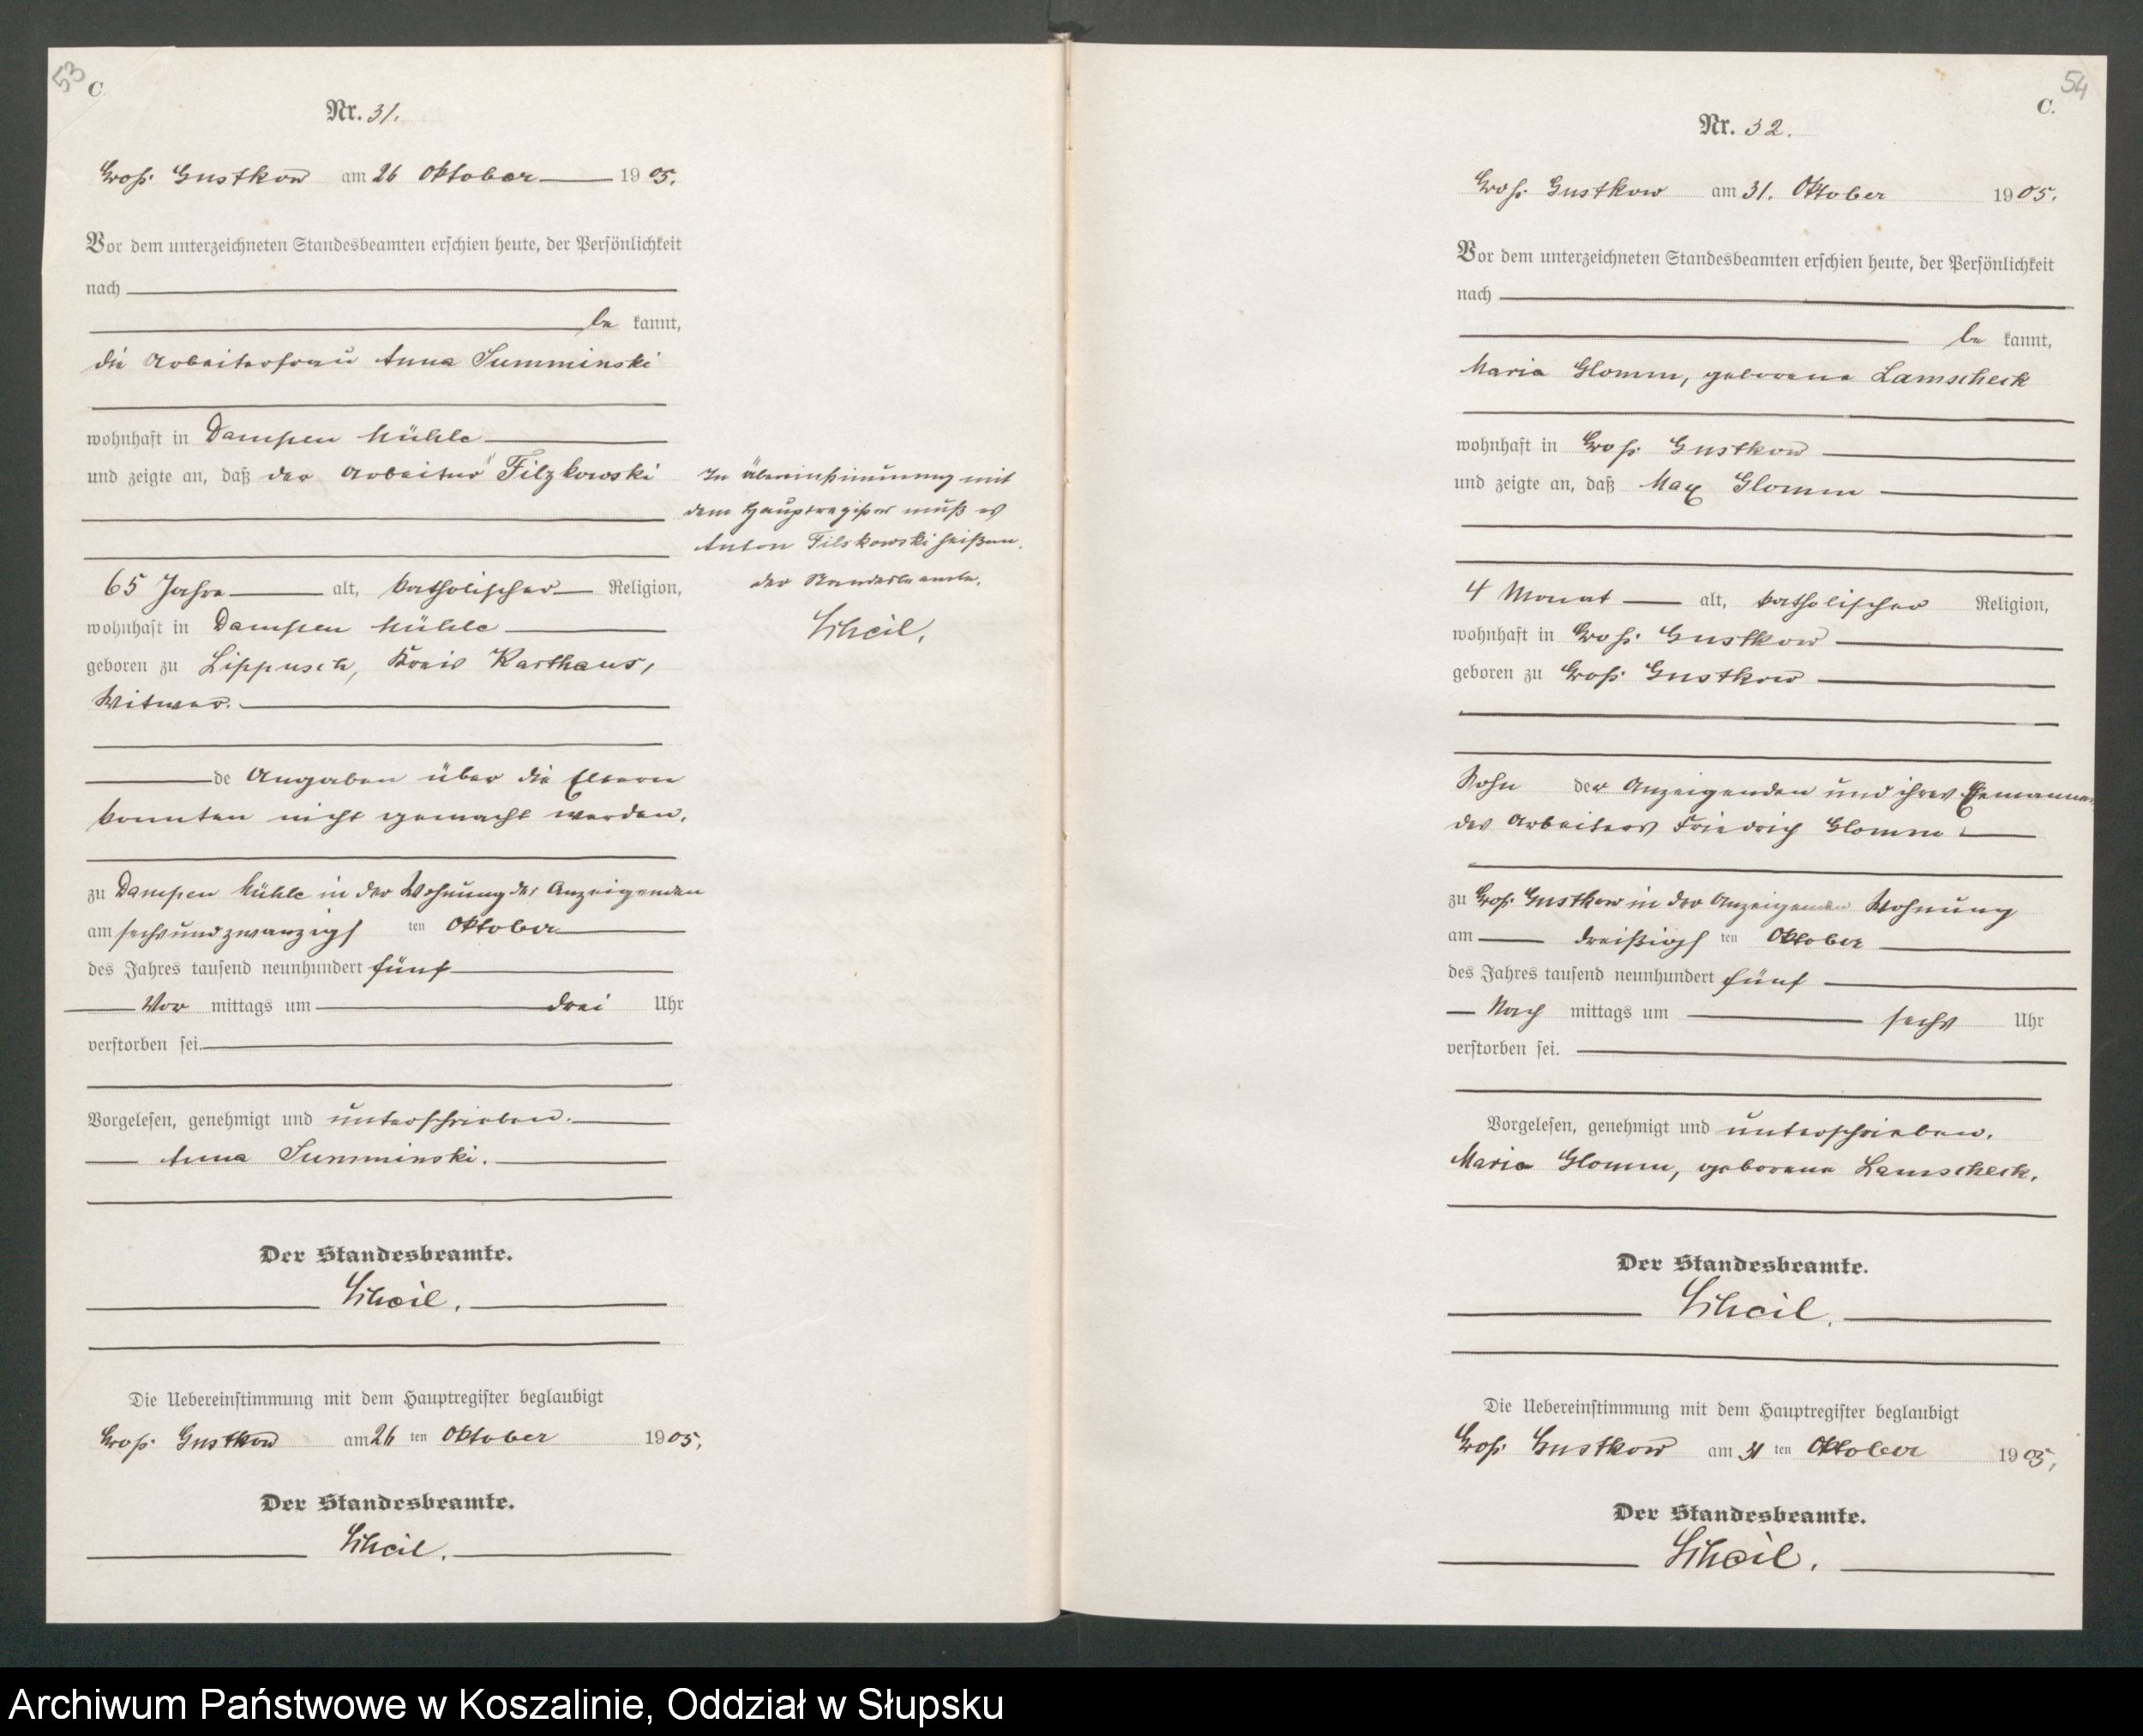 53
C
Nr. 31.
Groß Gustkow am 26 Oktober 1905.
Vor dem unterzeichneten Standesbeamten erschien heute, der Persönlichkeit
nach
be kannt,
die Arbeiterfrau Anna Summinski
wohnhaft in Dampen Mühle
und zeigte an, daß der Arbeiter Filzkowski
65 Jahre alt, katholischer Religion,
wohnhaft in Dampen Mühle
geboren zu Lippusch, Kreis Karthaus,
Witwer.
de Angaben über die Eltern
konnten nicht gemacht werden.
zu Dampen Mühle in der Wohnung der Anzeigenden
am sechsundzwanzigsten Oktober
des Jahres tausend neunhundert fünf
Vor mittags um drei Uhr
verstorben sei.
Vorgelesen, genehmigt und unterschrieben.
Anna Summinski.
Der Standesbeamte.
Scheil.
Die Uebereinstimmung mit dem Hauptregister beglaubigt
Groß Gustkow am 26 ten Oktober 1905.
Der Standesbeamte.
Scheil.
In Übereinstimmung mit
dem Hauptregister muß es
Anton Filskowski heißen.
der Standesbeamte.
Scheil.
54
C.
Nr. 32.
Groß Gustkow am 31. Oktober 1905.
Vor dem unterzeichneten Standesbeamten erschien heute, der Persönlichkeit
nach
be kannt,
Maria Glomm, geborene Lamscheck
wohnhaft in Groß Gustkow
und zeigte an, daß Max Glomm
4 Monat alt, katholischer Religion,
wohnhaft in Groß Gustkow
geboren zu Groß Gustkow
Sohn der Anzeigenden und ihres Ehemannes
des Arbeiters Friedrich Glomm
zu Groß Gustkow in der Anzeigenden Wohnung
am dreißigsten Oktober
des Jahres tausend neunhundert fünf
Nach mittags um sechs Uhr
verstorben sei.
Vorgelesen, genehmigt und unterschrieben.
Maria Glomm, geborene Lamscheck.
Der Standesbeamte.
Scheil.
Die Uebereinstimmung mit dem Hauptregister beglaubigt
Groß Gustkow am 31 ten Oktober 1905.
Der Standesbeamte.
Scheil.
Archiwum Państwowe w Koszalinie, Oddział w Słupsku